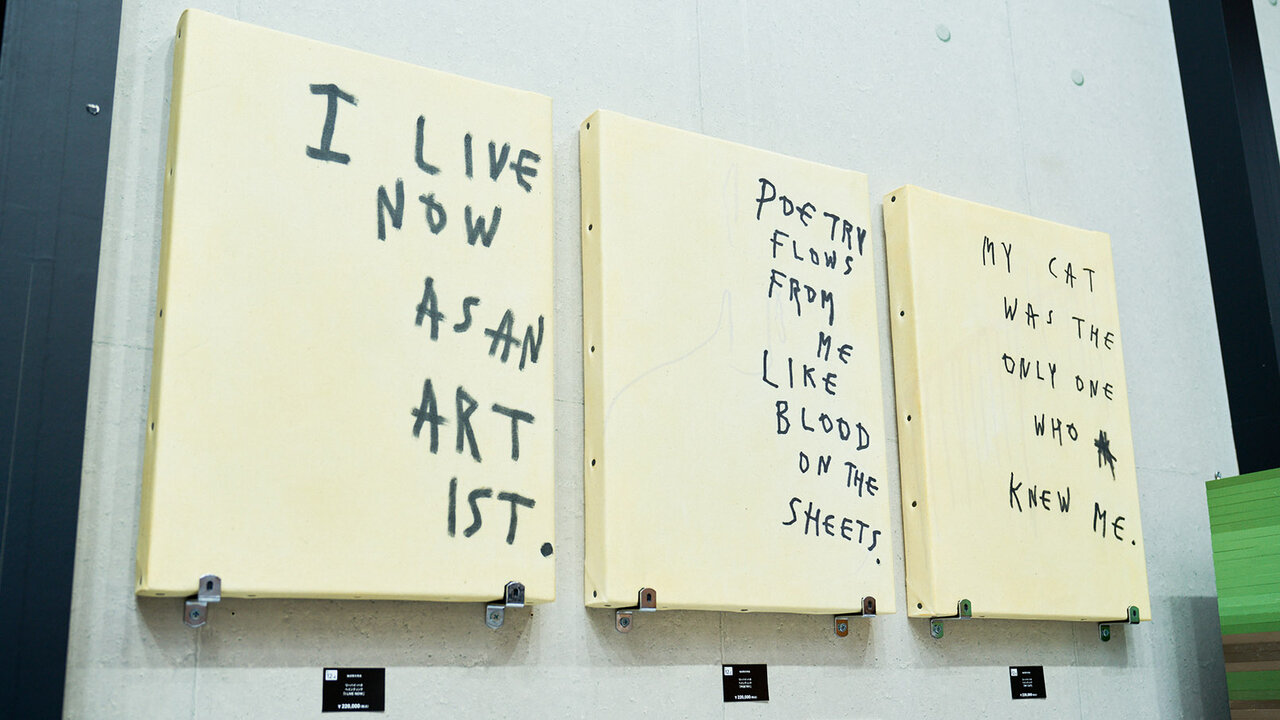 I LIVE
NOW
AS AN
ART
IST.
POETRY
FLOWS
FROM
ME
LIKE
BLOOD
ON THE
SHEETS.
MY CAT
WAS THE
ONLY ONE
WHO
KNEW ME.
¥220,000
¥220,000